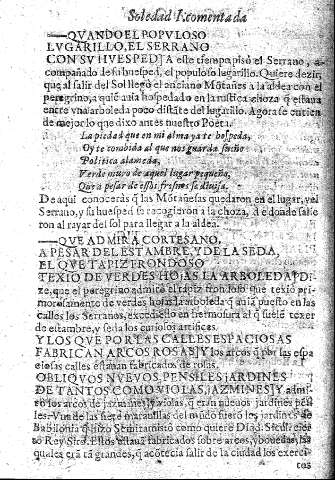 Soledad I. comentada
QVANDO EL POPVLOSO
LVGARILLO, EL SERRANO
CON SV HVESPED] A este tiempo pisò el Serrano, a-
compañado de su huesped, el populoso lugarillo. Quiere dezir,
que al salir del Sol llegò el anciano Mõtañes a la aldea con el
peregrino, a quiẽ auia hospedado en la rustica choza q̃ estaua
entre vna arboleda poco distãte del lugarillo. Agora se entien-
de mejor lo que dixo antes nuestro Poeta.
La piedad que en mi alma ya te hospeda,
Oy te combida al que nos guarda sueño
Politica alameda,
Verde muro de aquel lugar pequeño,
Que a pesar de essos fresnos se diuisa.
De aqui conocerás q̃ las Mõtañesas quedaron en el lugar, y el
Serrano, y su huesped se recogieron a la choza, de donde salie-
ron al rayar del sol para llegar a la aldea.
QVE ADMIRA CORTESANO,
A PESAR DEL ESTAMBRE, Y DE LA SEDA,
EL QVE TAPIZ FRONDOSO
TEXIO DE VERDES HOJAS LA ARBOLEDA] Di-
ze, que el peregrino admirò el tapiz frondoso que texiò pri-
morosamento de verdes hojas la arboleda q̃ auiã puesto en las
calles los Serranos, excediendo en hermosura al q̃ suelẽ texer
de estambre, y seda los curiosos artifices.
Y LOS QVE POR LAS CALLES ESPACIOSAS
FABRICAN ARCOS ROSAS] Y los arcos q̃ por las espa
ciosas calles estauan fabricados de rosas.
OBLIQVOS NVEVOS, PENSILES JARDINES
DE TANTOS COMO VIOLAS, JAZMINES] Y admi-
rò los arcos de jazmines, y violas, q̃ eran nueuos jardines pen
siles. Vna de las siete marauillas del mũdo fuerõ los jardines de
Babilonia q̃ hizo Semiramis ò como quiere Diod. Sicul. cier-
to Rey Siro. Estos estauã fabricados sobre arcos, y bouedas, ha
quales era tã grandes, q̃ acõtecia salir de la ciudad los exerci-
tos